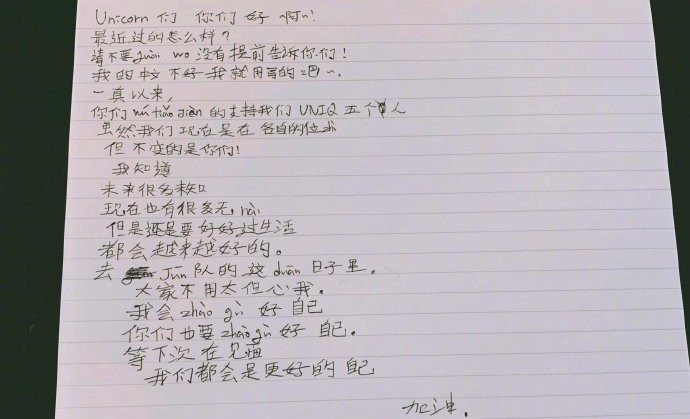 Unicorn 们 你们 好 啊~!
最近过的怎么样?
请不要guài wo 没有提前告诉你们!
我的中文不好 我就用写的吧~.
一真以来,
你们wú tiáo jiàn的支持我们 UNIQ 五个人
虽然我们现在是在各自的位
但不变的是你们!
我知道
未来很多未知
现在也有很多无 nài
但是还是要好好过生活
都会越来越好的。
去 jūn 队的这 duàn 日子里。
大家不用太但心我。
我会 zhào gù 好 自己
你们也要 zhào gù 好 自己.
等下次在见面
我们都会是更好的自己
加油.